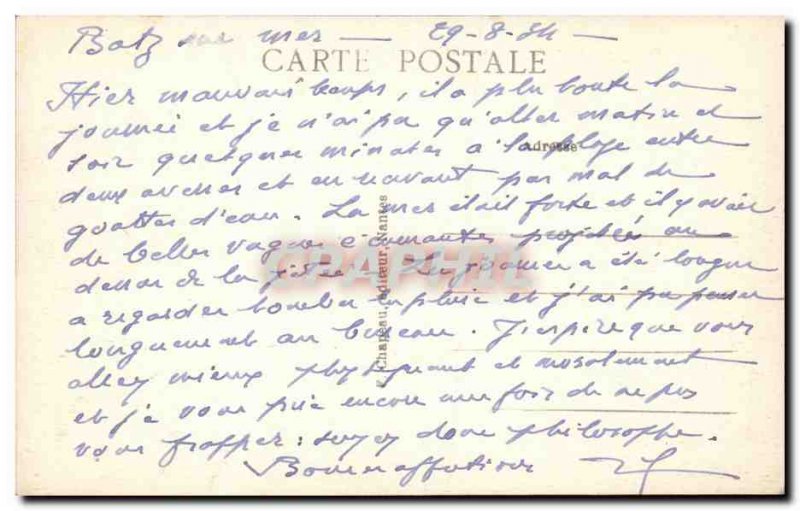 Batz sur mer — 29-8-34 —
CARTE POSTALE
Hier mauvais temps, il a plu toute la
journée et je n'ai pu qu'aller matin et
soir quelques minutes à la plage entre
Adresse
deux averses et en recevant pas mal de
gouttes d'eau. La mer était forte et il y avait
de belles vagues écumantes projetées au
dessus de la jetée — La journée a été longue
à regarder tomber la pluie et j'ai pu penser
longuement au bureau. J'espère que vous
allez mieux physiquement et moralement
et je vous prie encore une fois de ne pas
vous frapper : soyez donc philosophe.
Bonnes affections
Chapeau, éditeur, Nantes
CPAPHIL